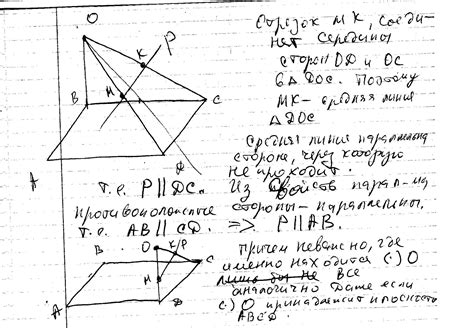 O
P
K
Отрезок МК, соеди-
няет середины
сторон OD и ОС
в ΔDOC. Поэтому
МК - средняя линия
ΔDOC
B
M
C
A
D
Средняя линия параллельна
стороне, через которую
не проходит.
т.е. P||DC. Из свойств парал-ма
противоположные стороны - параллельны.
т.е. AB||CD. => P||AB.
B
O
K/P
C
M
A
D
причем неважно, где
именно находится (·)O
все
аналогично даже если
(·) O принадлежит плоскости
ABCD.